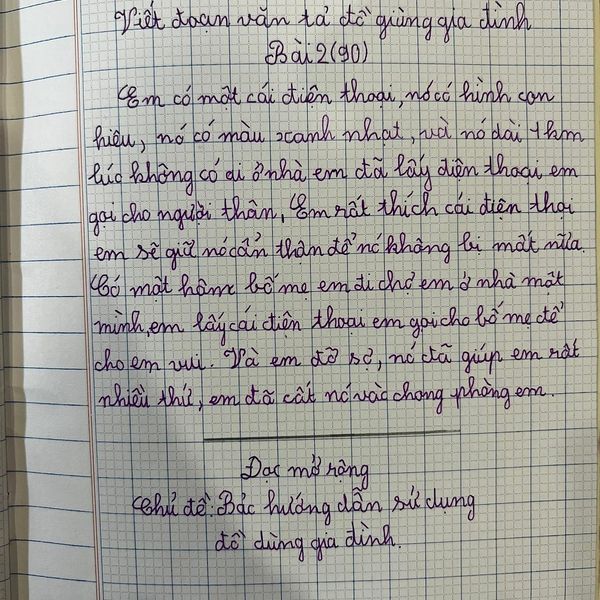 Viết đoạn văn tả đồ giùng gia đình
Bài 2(90)
Em có một cái điện thoại, nó có hình con
hiêu, nó có màu xanh nhạt, và nó dài 1 hm
lúc không có ai ở nhà em đã lấy điện thoại em
gọi cho người thân, Em rất thích cái điện thoại
em sẽ giữ nó cẩn thân để nó không bị mất nữa.
Có một hôm bố mẹ em đi chợ em ở nhà một
mình, em lấy cái điện thoại em gọi cho bố mẹ để
cho em vui. Và em đỡ sợ, nó đã giúp em rất
nhiều thứ, em đã cất nó vào chong phòng em.
Đọc mở rộng
Chủ đề: Bác hướng dẫn sử dụng
đồ dùng gia đình.